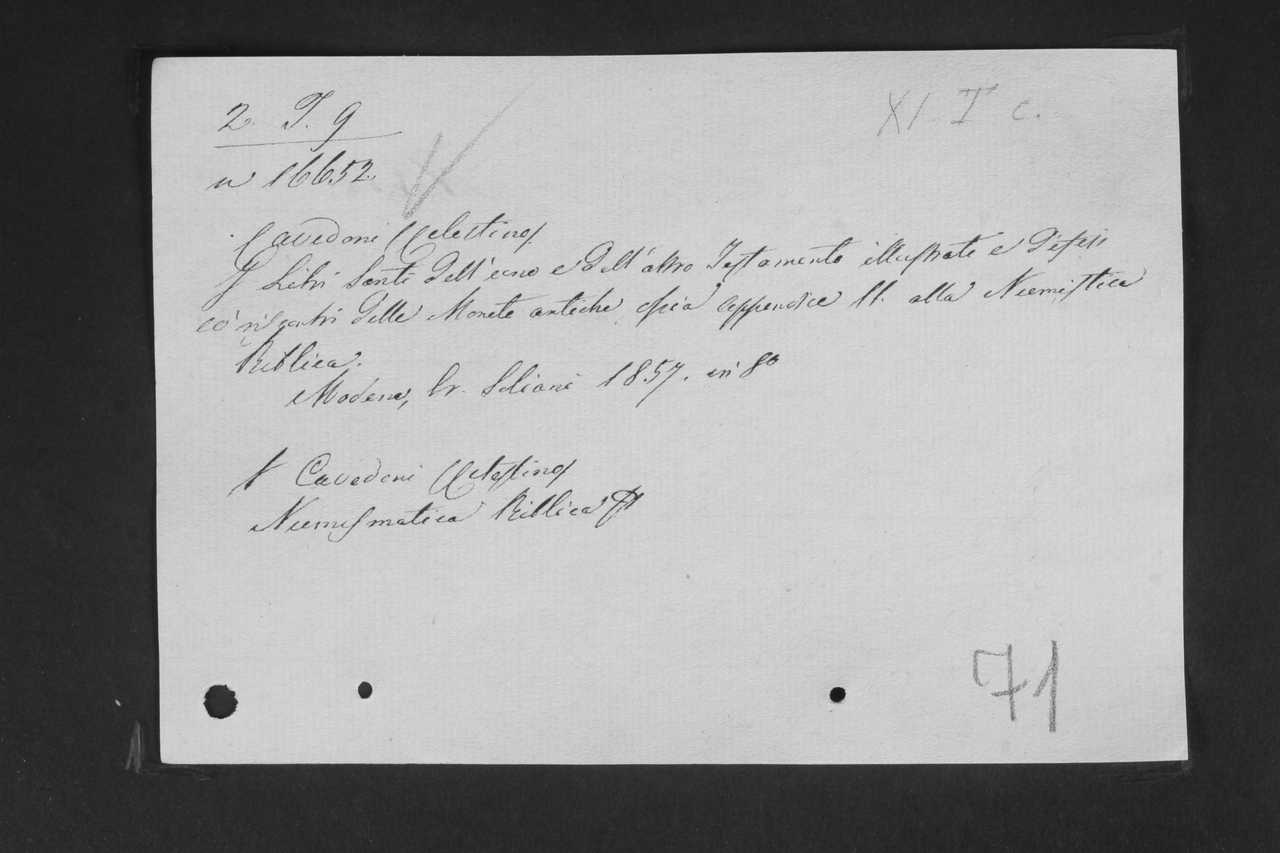 2. T. 9
XI T c.
n 16652
Cavedoni Celestino
I Libri Santi dell'uno e dell'altro Testamento illustrati e difesi
co' riscontri delle Monete antiche ossia appendice 11. alla Numistica
Biblica.
Modena, Er. Soliani 1857. in 8º
Cavedoni Celestino
Numismatica Biblica
71